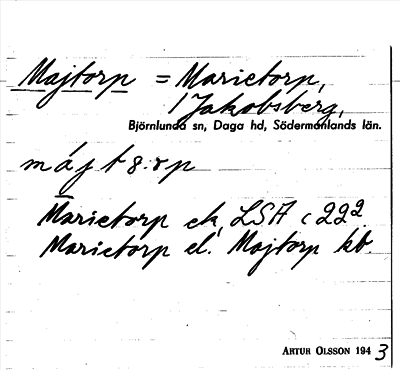 Majtorp = Marietorp,
/ Jakobsberg,
Björnlunda sn, Daga hd, Södermanlands län.
májt 8:rp
Marietorp ek, LSA c 222
Marietorp el. Majtorp kb.
ARTUR OLSSON 1943